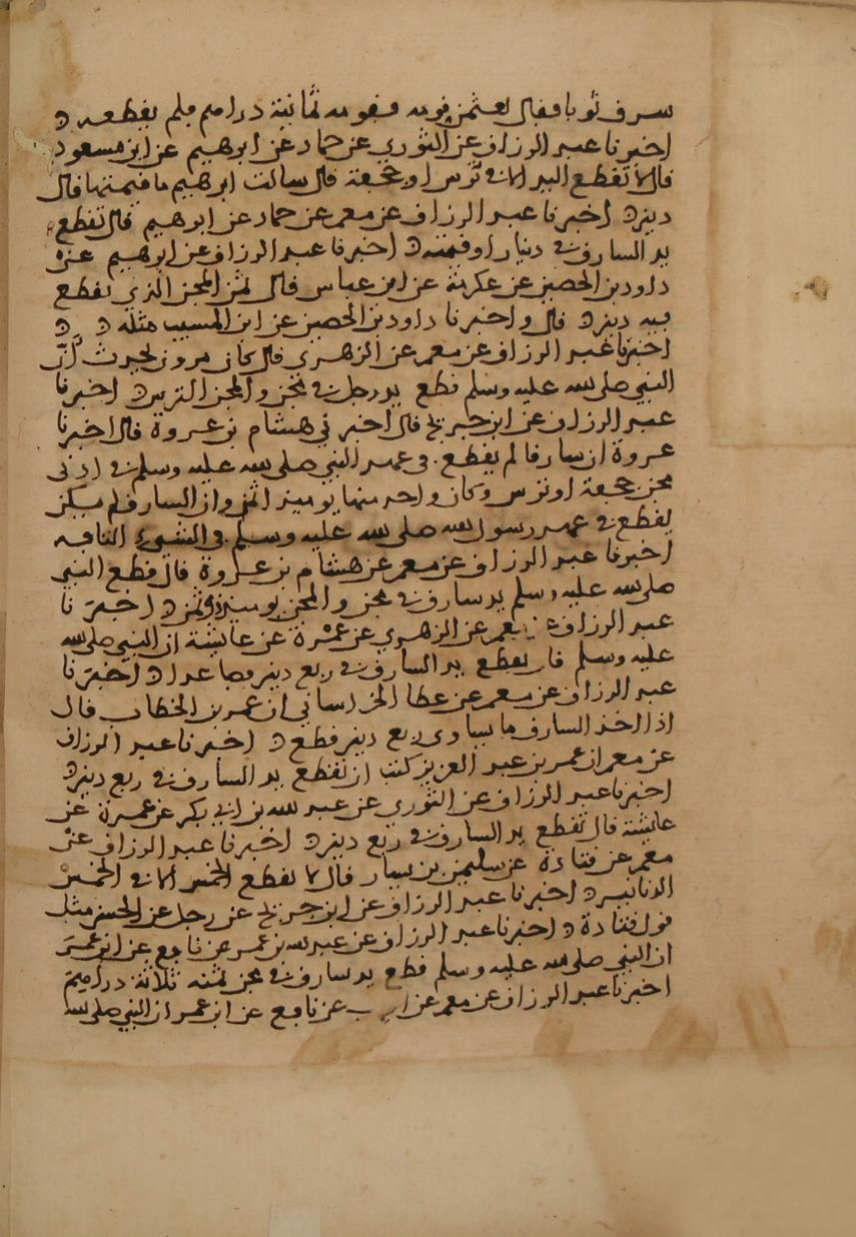 سرق ثوبا فقال لعثمن قومه فقومه ثمانية دراهم فلم يقطعه
اخبرنا عبد الرزاق عن الثوري عن حماد عن ابرهيم عن ابن مسعود
قال لا تقطع اليد الا في ترس او حجفة قال سالت ابرهيم ما قيمتها قال
دينر اخبرنا عبد الرزاق عن معمر عن حماد عن ابرهيم قال تقطع
يد السارق في دينار او قيمته اخبرنا عبد الرزاق عن ابرهيم عن
داود بن الحصين عن عكرمة عن ابن عباس قال ثمن المجن الذي تقطع
فيه دينر قال واخبرنا داود بن الحصين عن ابن المسيب مثله
اخبرنا عبد الرزاق عن معمر عن الزهري قال كان مروان يحدث ان
النبي صلى الله عليه وسلم قطع يد رجل في مجن والمجن الترس اخبرنا
عبد الرزاق عن ابن جريج قال اخبرني هشام بن عروة قال اخبرنا
عروة ان سارقا لم يقطع في عهد النبي صلى الله عليه وسلم في ادنى
مجن حجفة او ترس وكان واحد منها يومئذ ثمن وان السارق لم يكن
يقطع في عهد رسول الله صلى الله عليه وسلم في الشيء التافه
اخبرنا عبد الرزاق عن معمر عن هشام بن عروة قال قطع النبي
صلى الله عليه وسلم يد سارق في مجن والمجن يومئذ ذو ثمن اخبرنا
عبد الرزاق عن معمر عن الزهري عن عمرة عن عائشة ان النبي صلى الله
عليه وسلم قال تقطع يد السارق في ربع دينر فصاعدا اخبرنا
عبد الرزاق عن معمر عن عطا الخراساني ان عمر بن الخطاب قال
اذا اخذ السارق ما يساوي ربع دينر قطع اخبرنا عبد الرزاق
عن معمر ان عمر بن عبد العزيز كتب ان تقطع يد السارق في ربع دينر
اخبرنا عبد الرزاق عن الثوري عن عبد الله بن ابي بكر عن عمرة عن
عائشة قال تقطع يد السارق في ربع دينر اخبرنا عبد الرزاق عن
معمر عن قتادة عن سليمن بن يسار قال لا تقطع الخمس الا في الخمس
الدنانير اخبرنا عبد الرزاق عن ابن جريج عن رجل عن الحسن مثل
قول قتادة اخبرنا عبد الرزاق عن عبد الله بن عمر عن نافع عن ابن عمر
ان النبي صلى الله عليه وسلم قطع يد سارق في مجن ثمنه ثلاثة دراهم
اخبرنا عبد الرزاق عن معمر عن ايوب عن نافع عن ابن عمر ان النبي صلى الله